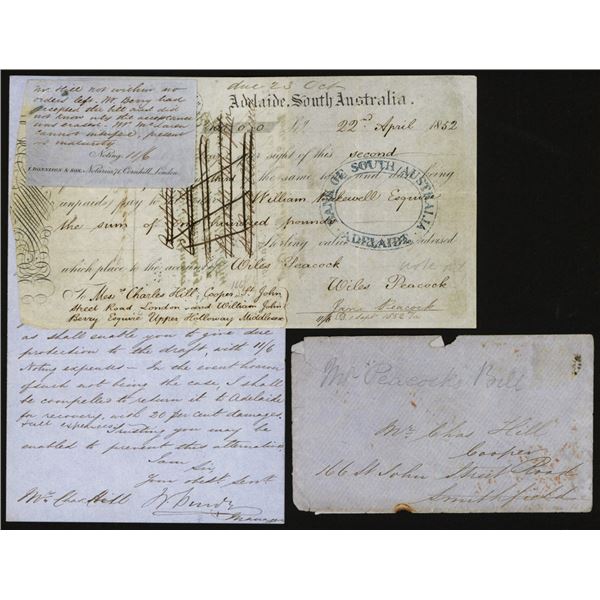 due 23 Oct
Adelaide, South Australia.
22nd April 1852
sight of this second
the same
unpaid) pay to
William Bakewell Esquire
the sum of hundred pounds
Sterling
which place to the account Wiles Peacock
Wiles Peacock
To Messrs Charles Hill, Cooper, St John
Street Road London and William John
Berry Esquire Upper Holloway Middlesex
Peacock
11/6 Sept 1852
BANK OF SOUTH AUSTRALIA
ADELAIDE
Mr Hill not within no
orders left. Mr Berry had
accepted the bill and did
not know why the acceptance
was erased. Mr
cannot interfere, present
at maturity
Noting 11/6
& SON, Notaries, Cornhill, London.
as shall enable you to give due
protection to the draft, with 11/6
Noting expenses – In the event however
of such not being the case, I shall
be compelled to return it to Adelaide
for recovery, with 20 per cent damages,
full expenses. Trusting you may be
enabled to prevent this alternative
I am
Sir
Your obdt Servt
Mr Chas Hill
Manager
Mr Peacock's Bill
Mr Chas Hill
Cooper
166 St John Street Road
Smithfield